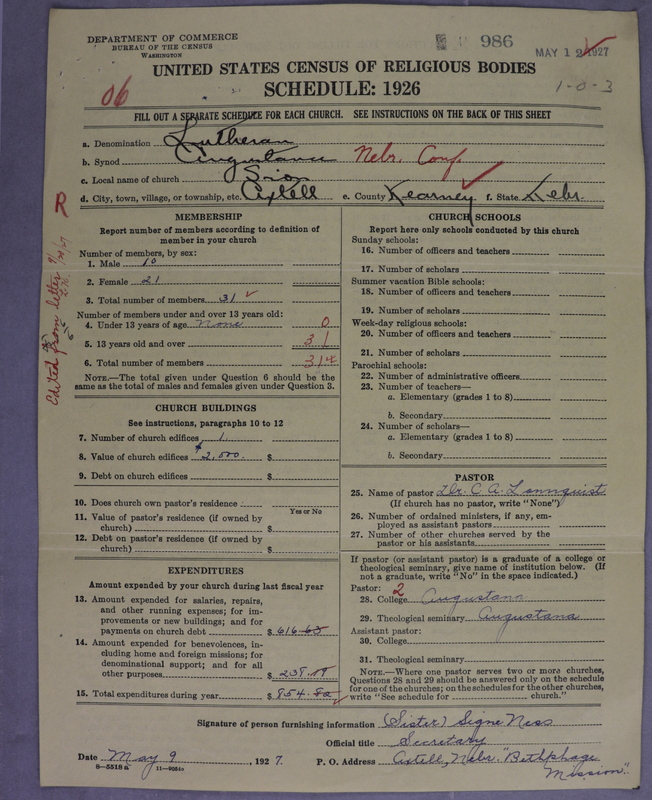 DEPARTMENT OF COMMERCE
BUREAU OF THE CENSUS
WASHINGTON
986
MAY 12 1927
UNITED STATES CENSUS OF RELIGIOUS BODIES
SCHEDULE: 1926
06
1-0-3
FILL OUT A SEPARATE SCHEDULE FOR EACH CHURCH. SEE INSTRUCTIONS ON THE BACK OF THIS SHEET
a. Denomination Lutheran
b. Synod Augustana Nebr. Conf.
c. Local name of church Sion
d. City, town, village, or township, etc. Axtell e. County Kearney f. State Nebr.
R
Edited from letter
MEMBERSHIP
Report number of members according to definition of
member in your church
Number of members, by sex:
1. Male 10
2. Female 21
3. Total number of members 31
Number of members under and over 13 years old:
4. Under 13 years of age None 0
5. 13 years old and over 31
6. Total number of members 31
NOTE.—The total given under Question 6 should be
same as the total of males and females given under Question 3.
CHURCH BUILDINGS
See instructions, paragraphs 10 to 12
7. Number of church edifices 1
8. Value of church edifices $2,000. $
9. Debt on church edifices $
10. Does church own pastor's residence
Yes or No
11. Value of pastor's residence (if owned by
church) $
12. Debt on pastor's residence (if owned by
church) $
EXPENDITURES
Amount expended by your church during last fiscal year
13. Amount expended for salaries, repairs,
and other running expenses; for im-
provements or new buildings; and for
payments on church debt $ 616.63
14. Amount expended for benevolences, in-
cluding home and foreign missions; for
denominational support; and for all
other purposes $
15. Total expenditures during year $ 854.82
CHURCH SCHOOLS
Report here only schools conducted by this church
Sunday schools:
16. Number of officers and teachers
17. Number of scholars
Summer vacation Bible schools:
18. Number of officers and teachers
19. Number of scholars
Week-day religious schools:
20. Number of officers and teachers
21. Number of scholars
Parochial schools:
22. Number of administrative officers
23. Number of teachers—
a. Elementary (grades 1 to 8)
b. Secondary
24. Number of scholars—
a. Elementary (grades 1 to 8)
b. Secondary
PASTOR
25. Name of pastor Dr. C. A. Lonnquist
(If church has no pastor, write "None")
26. Number of ordained ministers, if any, em-
ployed as assistant pastors
27. Number of other churches served by the
pastor or his assistants
If pastor (or assistant pastor) is a graduate of a college or
theological seminary, give name of institution below. (If
not a graduate, write "No" in the space indicated.)
Pastor: 2
28. College Augustana
29. Theological seminary Augustana
Assistant pastor:
30. College
31. Theological seminary
NOTE.—Where one pastor serves two or more churches,
Questions 28 and 29 should be answered only on the schedule
for one of the churches; on the schedules for the other churches,
write "See schedule for church."
Signature of person furnishing information (Sister) Signe Ness
Official title Secretary
Date May 9, 1927. P. O. Address Axtell, Nebr. "Bethphage
Mission".
8—5518a 11—9051a